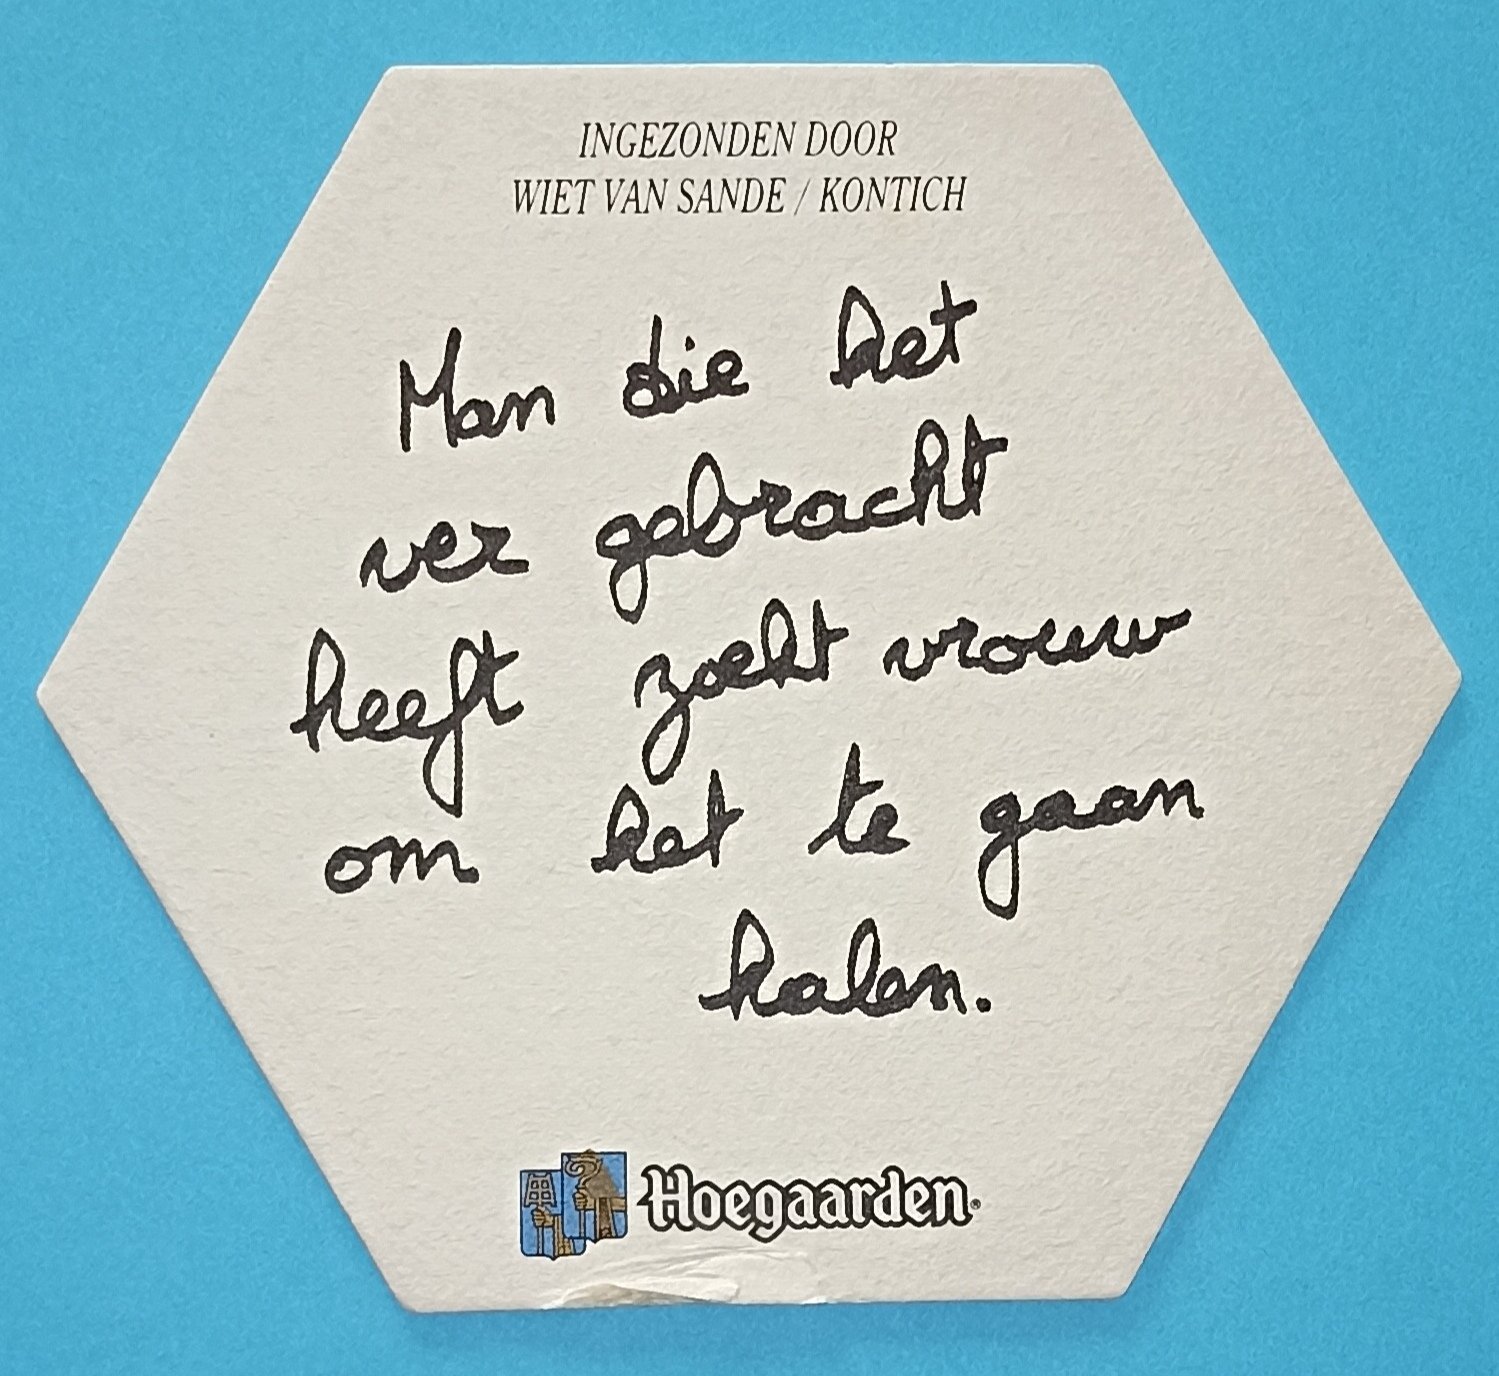 INGEZONDEN DOOR
WIET VAN SANDE / KONTICH
Man die het
ver gebracht
heeft zoekt vrouw
om het te gaan
halen.
Hoegaarden®